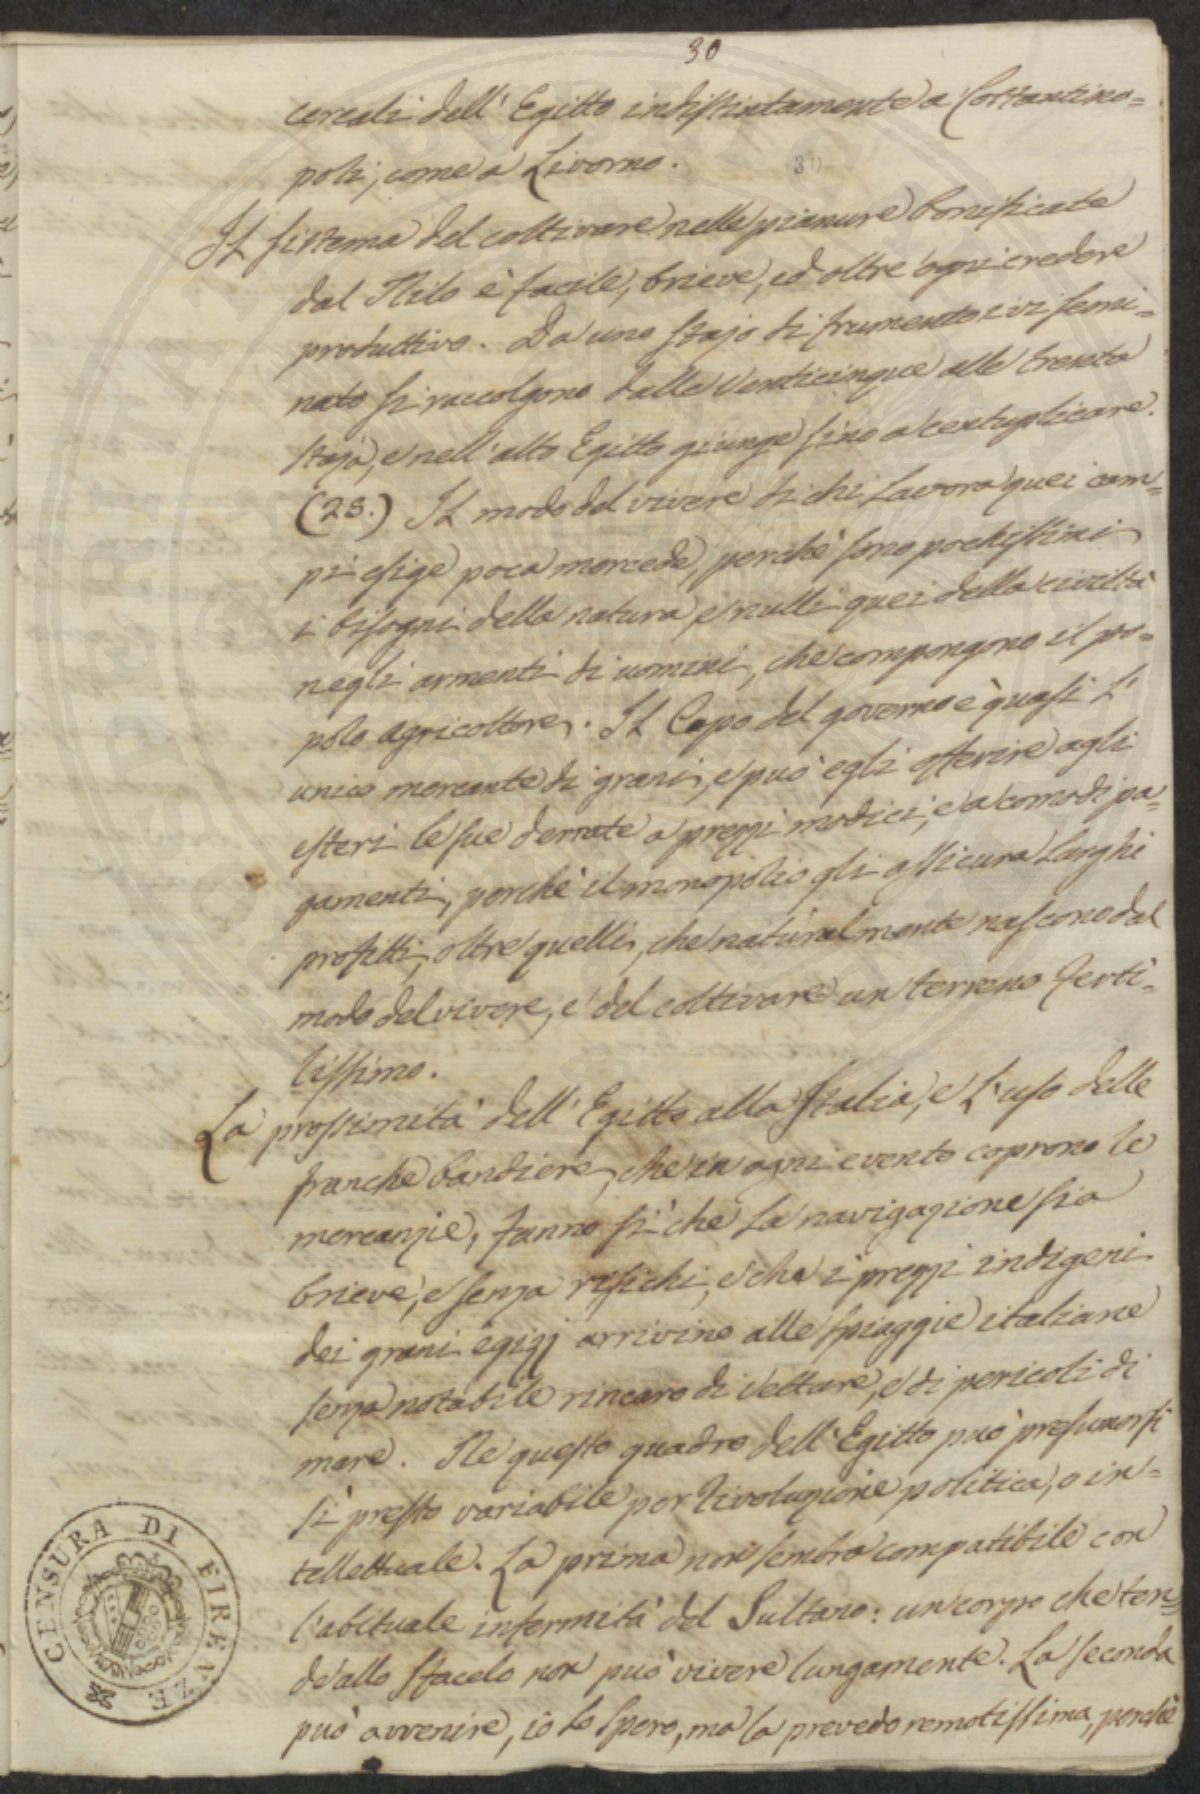 30
cereali dell' Egitto indistintamente a Costantino=
poli, come a Livorno.
30
Il sistema del coltivare nelle pianure bonificate
dal Nilo è facile, brieve, ed oltre ogni credere
produttivo. Da uno stajo di frumento ivi semi=
nato si raccolgono dalle venticinque alle trenta
staja, e nell'alto Egitto giunge sino a centuplicare.
(28.) Il modo del vivere di chi lavora quei cam=
pi esige poca mercede, perchè sono pochissimi
i bisogni della natura, e nulli quei della civiltà
negli armenti di uomini, che compongono il po=
polo agricoltore. Il Capo del governo è quasi l'
unico mercante di grani, e può egli offerire agli
esteri le sue derrate a prezzi modici, e a comodi pa=
gamenti, perchè il monopolio gli assicura larghi
profitti, oltre quelli, che naturalmente nascono dal
modo del vivere, e del coltivare un terreno ferti=
lissimo.
La prossimità dell' Egitto alla Italia, e l'uso delle
franche bandiere, che in ogni evento coprono le
mercanzie, fanno sì che la navigazione sia
brieve, e senza risichi, e che i prezzi indigeni
dei grani egizj arrivino alle spiaggie italiane
senza notabile rincaro di vetture, e di pericoli di
mare. Ne questo quadro dell'Egitto può presumersi
sì presto variabile per rivoluzione politica, o in=
tellettuale. La prima non sembra compatibile con
l'abituale infermità del Sultano: un corpo che ten=
de allo sfacelo non può vivere lungamente. La seconda
può avvenire, io lo spero, ma la prevedo remotissima, perchè
CENSURA DI FIRENZE